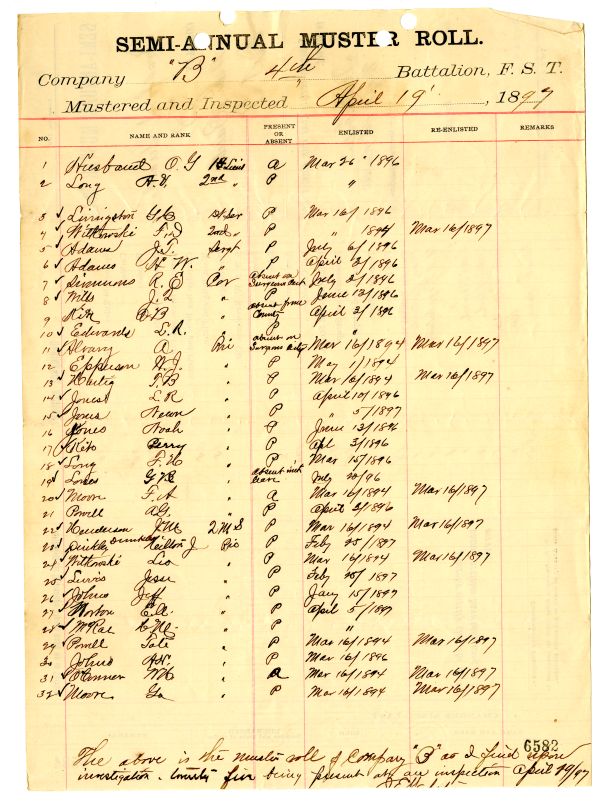 SEMI-ANNUAL MUSTER ROLL.
Company "B" 4th Battalion, F. S. T.
Mustered and Inspected April 19, 1897
NO. NAME AND RANK PRESENT OR ABSENT ENLISTED RE-ENLISTED REMARKS
1 Husband O. G 1st Lieut a Mar 26 1896
2 Long 2nd " P "
3 Livingston P Mar 16/1896
4 Witkowski 2nd " P " 1894 Mar 16/1897
5 Adams J. T. Sergt P July 6/1896
6 Adams H. W. " P April 2/1896
7 Simmons R. E Cor absent on Surgeons Cert July 2/1896
8 Wills J. L " P June 13/1896
9 B " absent from County April 2/1896
10 Edwards L. R. " P "
11 Alvary A Pri absent on Surgeons Mar 16/1894 Mar 16/1897
12 Epperson W. J. " P May 1/1894
13 T. B " P Mar 16/1894 Mar 16/1897
14 Jones L R " P April 10/1896
15 Jones " P " 5/1897
16 Jones Noah " June 13/1896
17 Perry " P Apl 3/1896
18 Long " P Mar 15/1896
19 " absent leave July /96
20 Moore F. A " a Mar 16/1894 Mar 16/1897
21 Powell A. G. " P April 2/1896
22 Henderson J. M. 2 M S P Mar 16/1894 Mar 16/1897
23 Dunkley Hilton J Pri P Feby 25/1897
24 Witkowski Leo " P Mar 16/1894 Mar 16/1897
25 Jesse " P Feby 1897
26 Johns Jeff " P Jany 15/1897
27 Norton E. A. " P April 5/1897
28 McRae " P "
29 Powell Tate " P Mar 16/1894 Mar 16/1897
30 Johns " P Mar 16/1896
31 " a Mar 16/1894 Mar 16/1897
32 Moore Geo " P Mar 16/1894 Mar 16/1897
6582
The above is the muster roll of Company "B" as I find upon
investigation. Twenty five being present at an inspection April 19/97